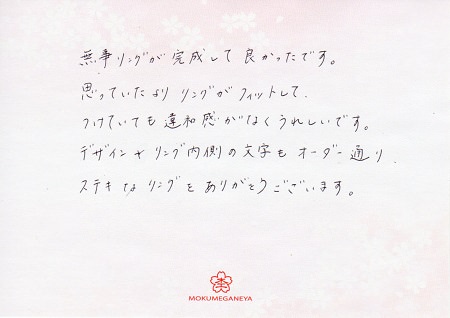 無事リングが完成して良かったです。
思っていたより リングがフィットして、
つけていても違和感がなくうれしいです。
デザインやリング内側の文字もオーダー通り、
ステキなリングをありがとうございます。
MOKUMEGANEYA